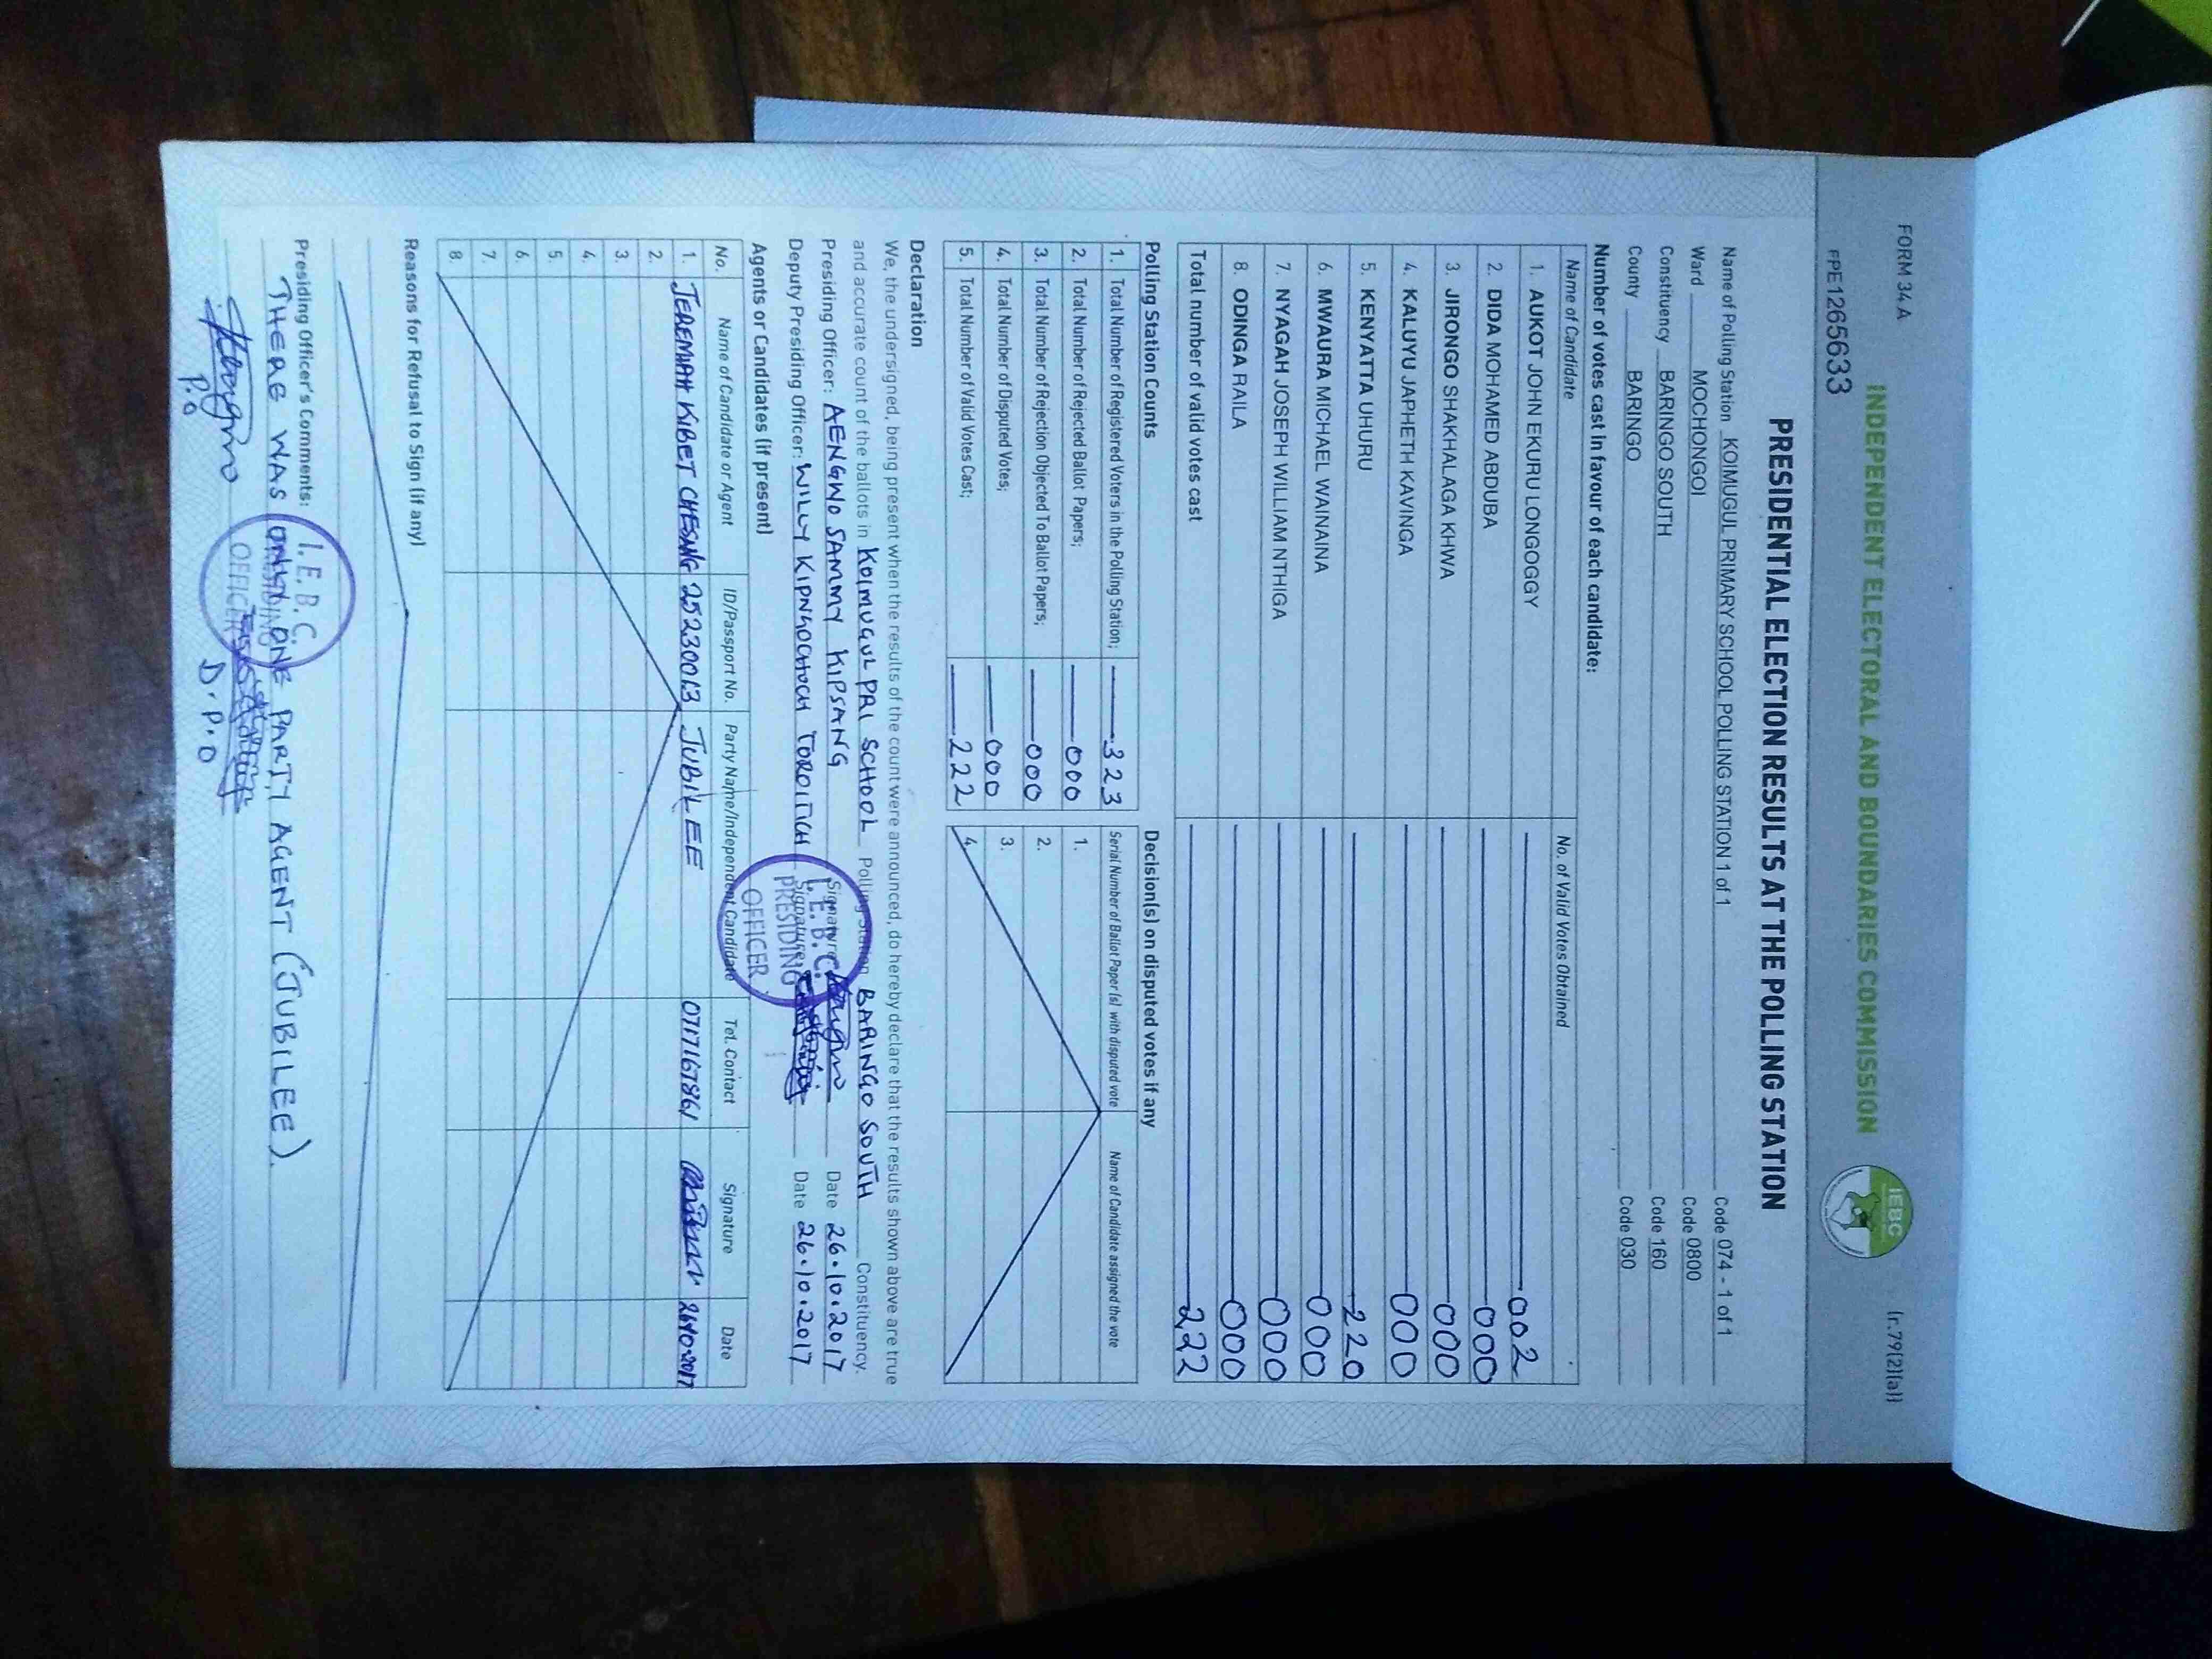 FORM 34 A
(r.79(2)(a))
INDEPENDENT ELECTORAL AND BOUNDARIES COMMISSION
IEBC
FPE1265633
PRESIDENTIAL ELECTION RESULTS AT THE POLLING STATION
Name of Polling Station KOIMUGUL PRIMARY SCHOOL POLLING STATION 1 of 1 Code 074 - 1 of 1
Ward MOCHONGOI Code 0800
Constituency BARINGO SOUTH Code 160
County BARINGO Code 030
Number of votes cast in favour of each candidate:
Name of Candidate No. of Valid Votes Obtained
1. AUKOT JOHN EKURU LONGOGGY 002
2. DIDA MOHAMED ABDUBA 000
3. JIRONGO SHAKHALAGA KHWA 000
4. KALUYU JAPHETH KAVINGA 000
5. KENYATTA UHURU 220
6. MWAURA MICHAEL WAINAINA 000
7. NYAGAH JOSEPH WILLIAM NTHIGA 000
8. ODINGA RAILA 000
Total number of valid votes cast 222
Polling Station Counts
1. Total Number of Registered Voters in the Polling Station; 323
2. Total Number of Rejected Ballot Papers; 000
3. Total Number of Rejection Objected To Ballot Papers; 000
4. Total Number of Disputed Votes; 000
5. Total Number of Valid Votes Cast; 222
Decision(s) on disputed votes if any
Serial Number of Ballot Paper (s) with disputed vote Name of Candidate assigned the vote
1.
2.
3.
4.
Declaration
We, the undersigned, being present when the results of the count were announced, do hereby declare that the results shown above are true
and accurate count of the ballots in KOIMUGUL PRI SCHOOL Polling Station BARINGO SOUTH Constituency.
Presiding Officer: AENGWO SAMMY KIPSANG Signature Date 26.10.2017
Deputy Presiding Officer: WILLY KIPNGOCHOCH TOROITICH Signature: Date 26.10.2017
I.E.B.C.
PRESIDING
OFFICER
Agents or Candidates (if present)
No. Name of Candidate or Agent ID/Passport No. Party Name/Independent Candidate Tel. Contact Signature Date
1. JEREMIAH KIBET 25230013 JUBILEE 0717167861 26.10.2017
2.
3.
4.
5.
6.
7.
8.
Reasons for Refusal to Sign (if any)
Presiding Officer's Comments:
THERE WAS ONLY ONE PARTY AGENT (JUBILEE).
I.E.B.C.
PRESIDING
OFFICER
P.O
D.P.O